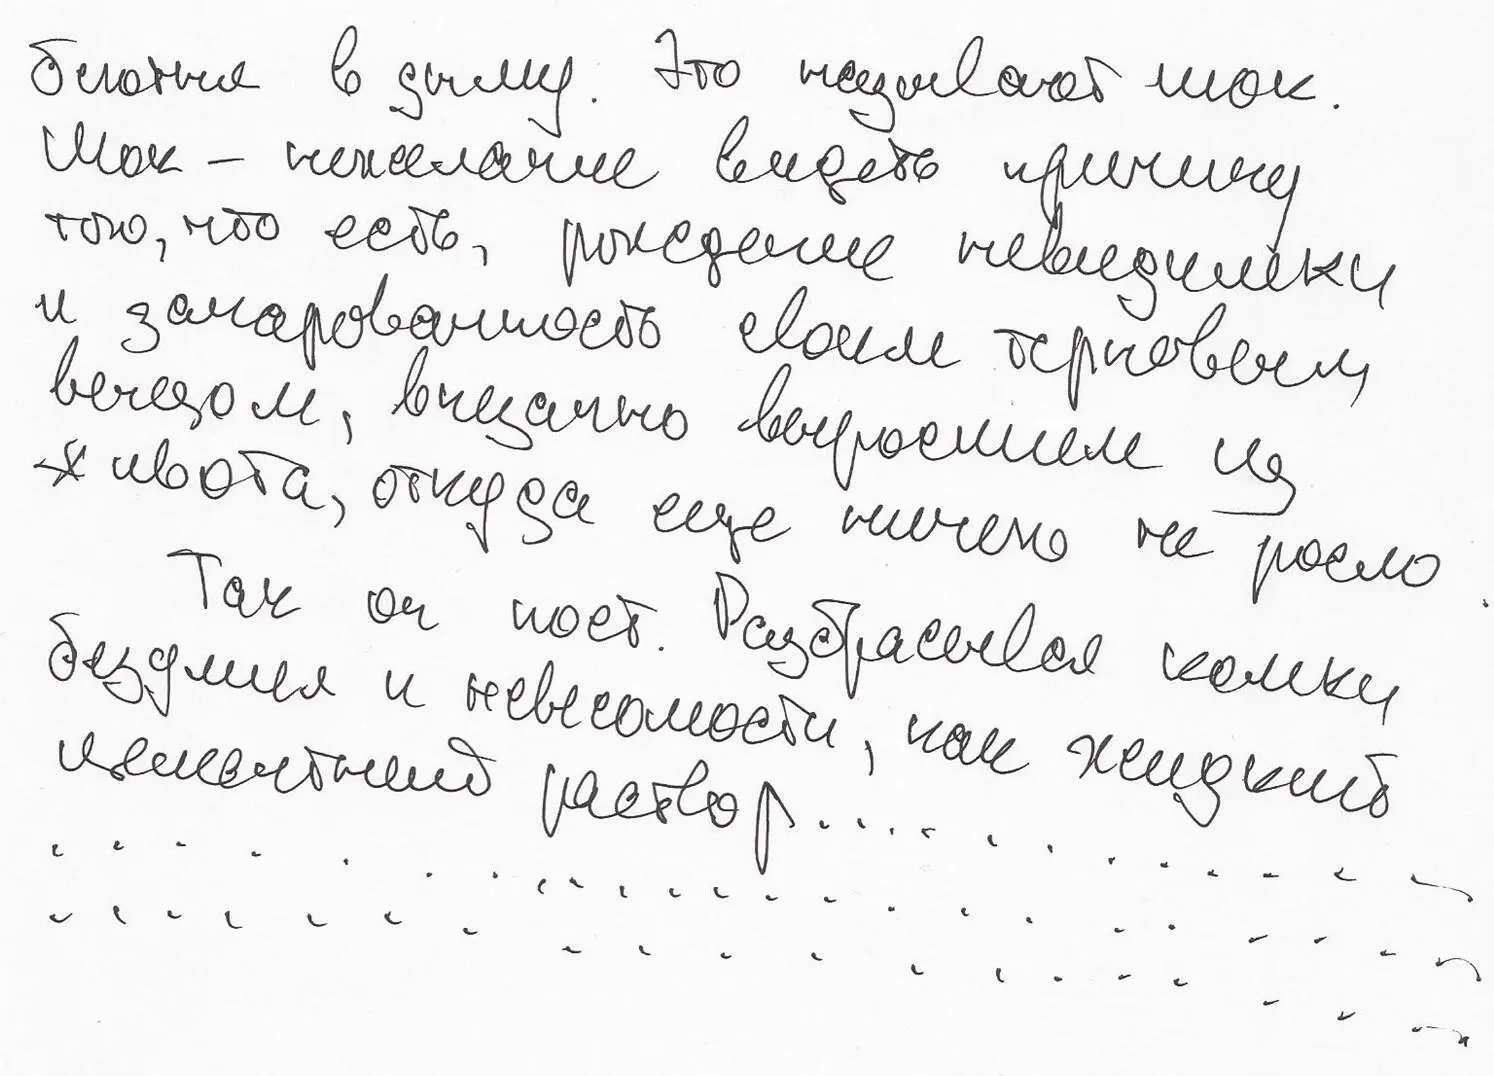 биотия в дыму. Это называют шок.
Шок – нежелание видеть причину
того, что есть, рождение невидимки
и зачарованность своим терновым
венцом, внезапно выросшем из
живота, откуда еще ничего не росло.
Так он поет. Разбрасывая комки
безумия и невесомости, как жидкий
цементный раствор..........